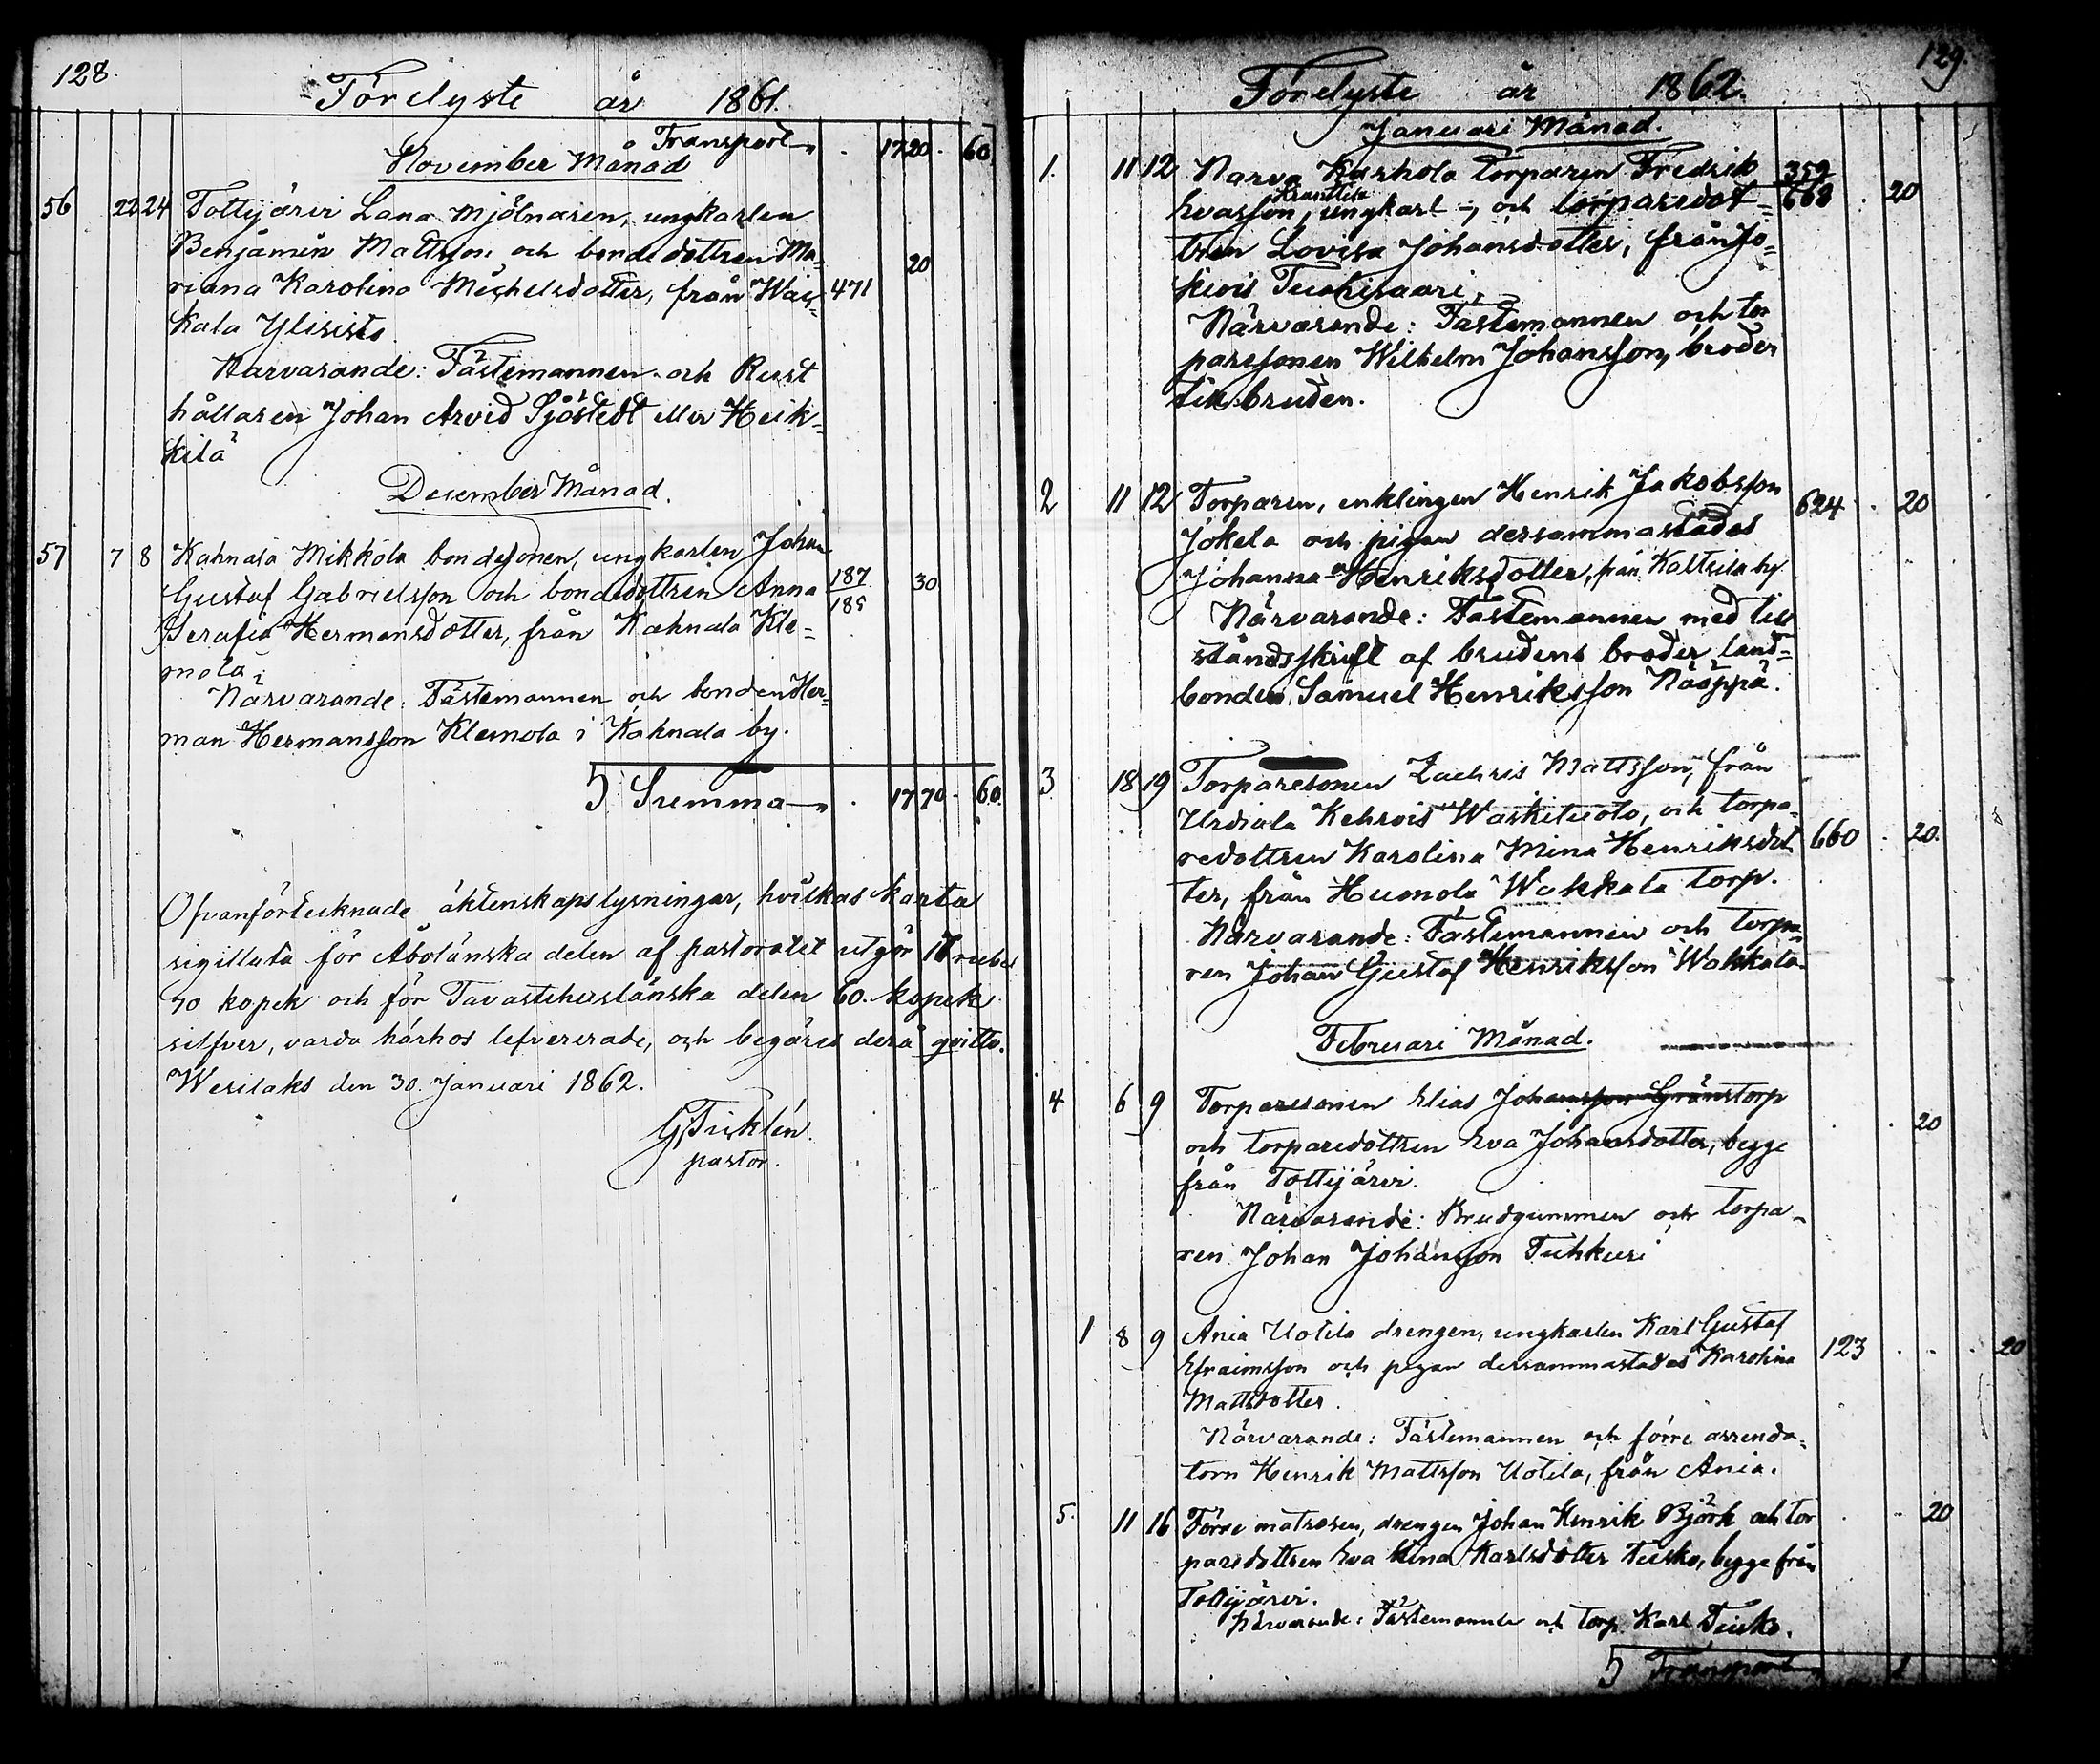 128.
Förelyste år 1861.
Transport 17 20. 60
November Månad
56 22 24 Tottijärvi Lana Mjölnaren, ungkarlen
Benjamin Mattsson och bondedottren Ma= 20
riana Karolina Michelsdotter, från Wais= 471
kala Ylisisto
Närvarande: Fästemannen och Rust
hållaren Johan Arvid Sjöstedt eller Heik=
kilä
December Månad.
57 7 8 Kahnala Mikkola bondesonen, ungkarlen Johan
Gustaf Gabrielsson och bondedottren Anna 187 30
Serafia Hermansdotter, från Kahnala Kle=
mola;
Närvarande: Fästemannen och bonden Her=
man Hermansson Klemola i Kahnala by.
Summa 17 70. 60.
Ofvanförtecknade äktenskapslysningar, hvilkas karta
sigillata för Åbolänska delen af pastoratet utgör 17 rubel
70 kopek och för Tavastehuslänska delen 60. kopek
silfver, varda härhos lefvererade, och begäres derå qvitto.
Wesilaks den 30. Januari 1862.
pastor.
129.
Förelyste år 1862.
Januari Månad.
1. 11 12 Narva Karhola torparen Fredrik 359
Evasson, ungkarl, och torparedot= 668 . 20
tren Lovisa Johansdotter, från Jo=
kiois
Närvarande: Fästemannen och tor
paresonen Wilhelm Johansson, broder
till bruden.
2 11 12 Torparen, enklingen Henrik Jakobsson 624 . 20
Jokela och pigan dersammastädes
Johanna Henriksdotter, från Kaltsila by
Närvarande: Fästemannen med till
ståndsskrift af brudens broder land=
bonden Samuel Henriksson Näöppä.
3 18 19 Torparesonen Zachris Mattsson, från
Urdiala Kehrois Waskituoto, och torpa=
redottren Karolina Mina Henriksdot 660 . 20.
ter, från Huonola Wakkala torp.
Närvarande: Fästemannen och torpa=
ren Johan Gustaf Henriksson Wakkala
Februari Månad.
4 6 9 Torparesonen Elias Johansson Gränstorp
och torparedottren Eva Johansdotter, begge . 20
från Tottijärvi.
Närvarande: Brudgummen och torpa=
ren Johan Johansson Tuhkuri
1 8 9 Ania Uotila drengen, ungkarlen Karl Gustaf
Efraimsson och pigan dersammastädes Karolina 123 . . . 20
Mattsdotter.
Närvarande: Fästemannen och förre arrenda=
torn Henrik Mattsson Uotila, från Ania.
5. 11 16 Förre matrosen, drengen Johan Henrik Björk och tor . 20
paredottren Eva Lina Karlsdotter Teisko, begge från
Tottijärvi.
Närvarande: Fästemannen och torp. Karl Teisko.
Transport 1